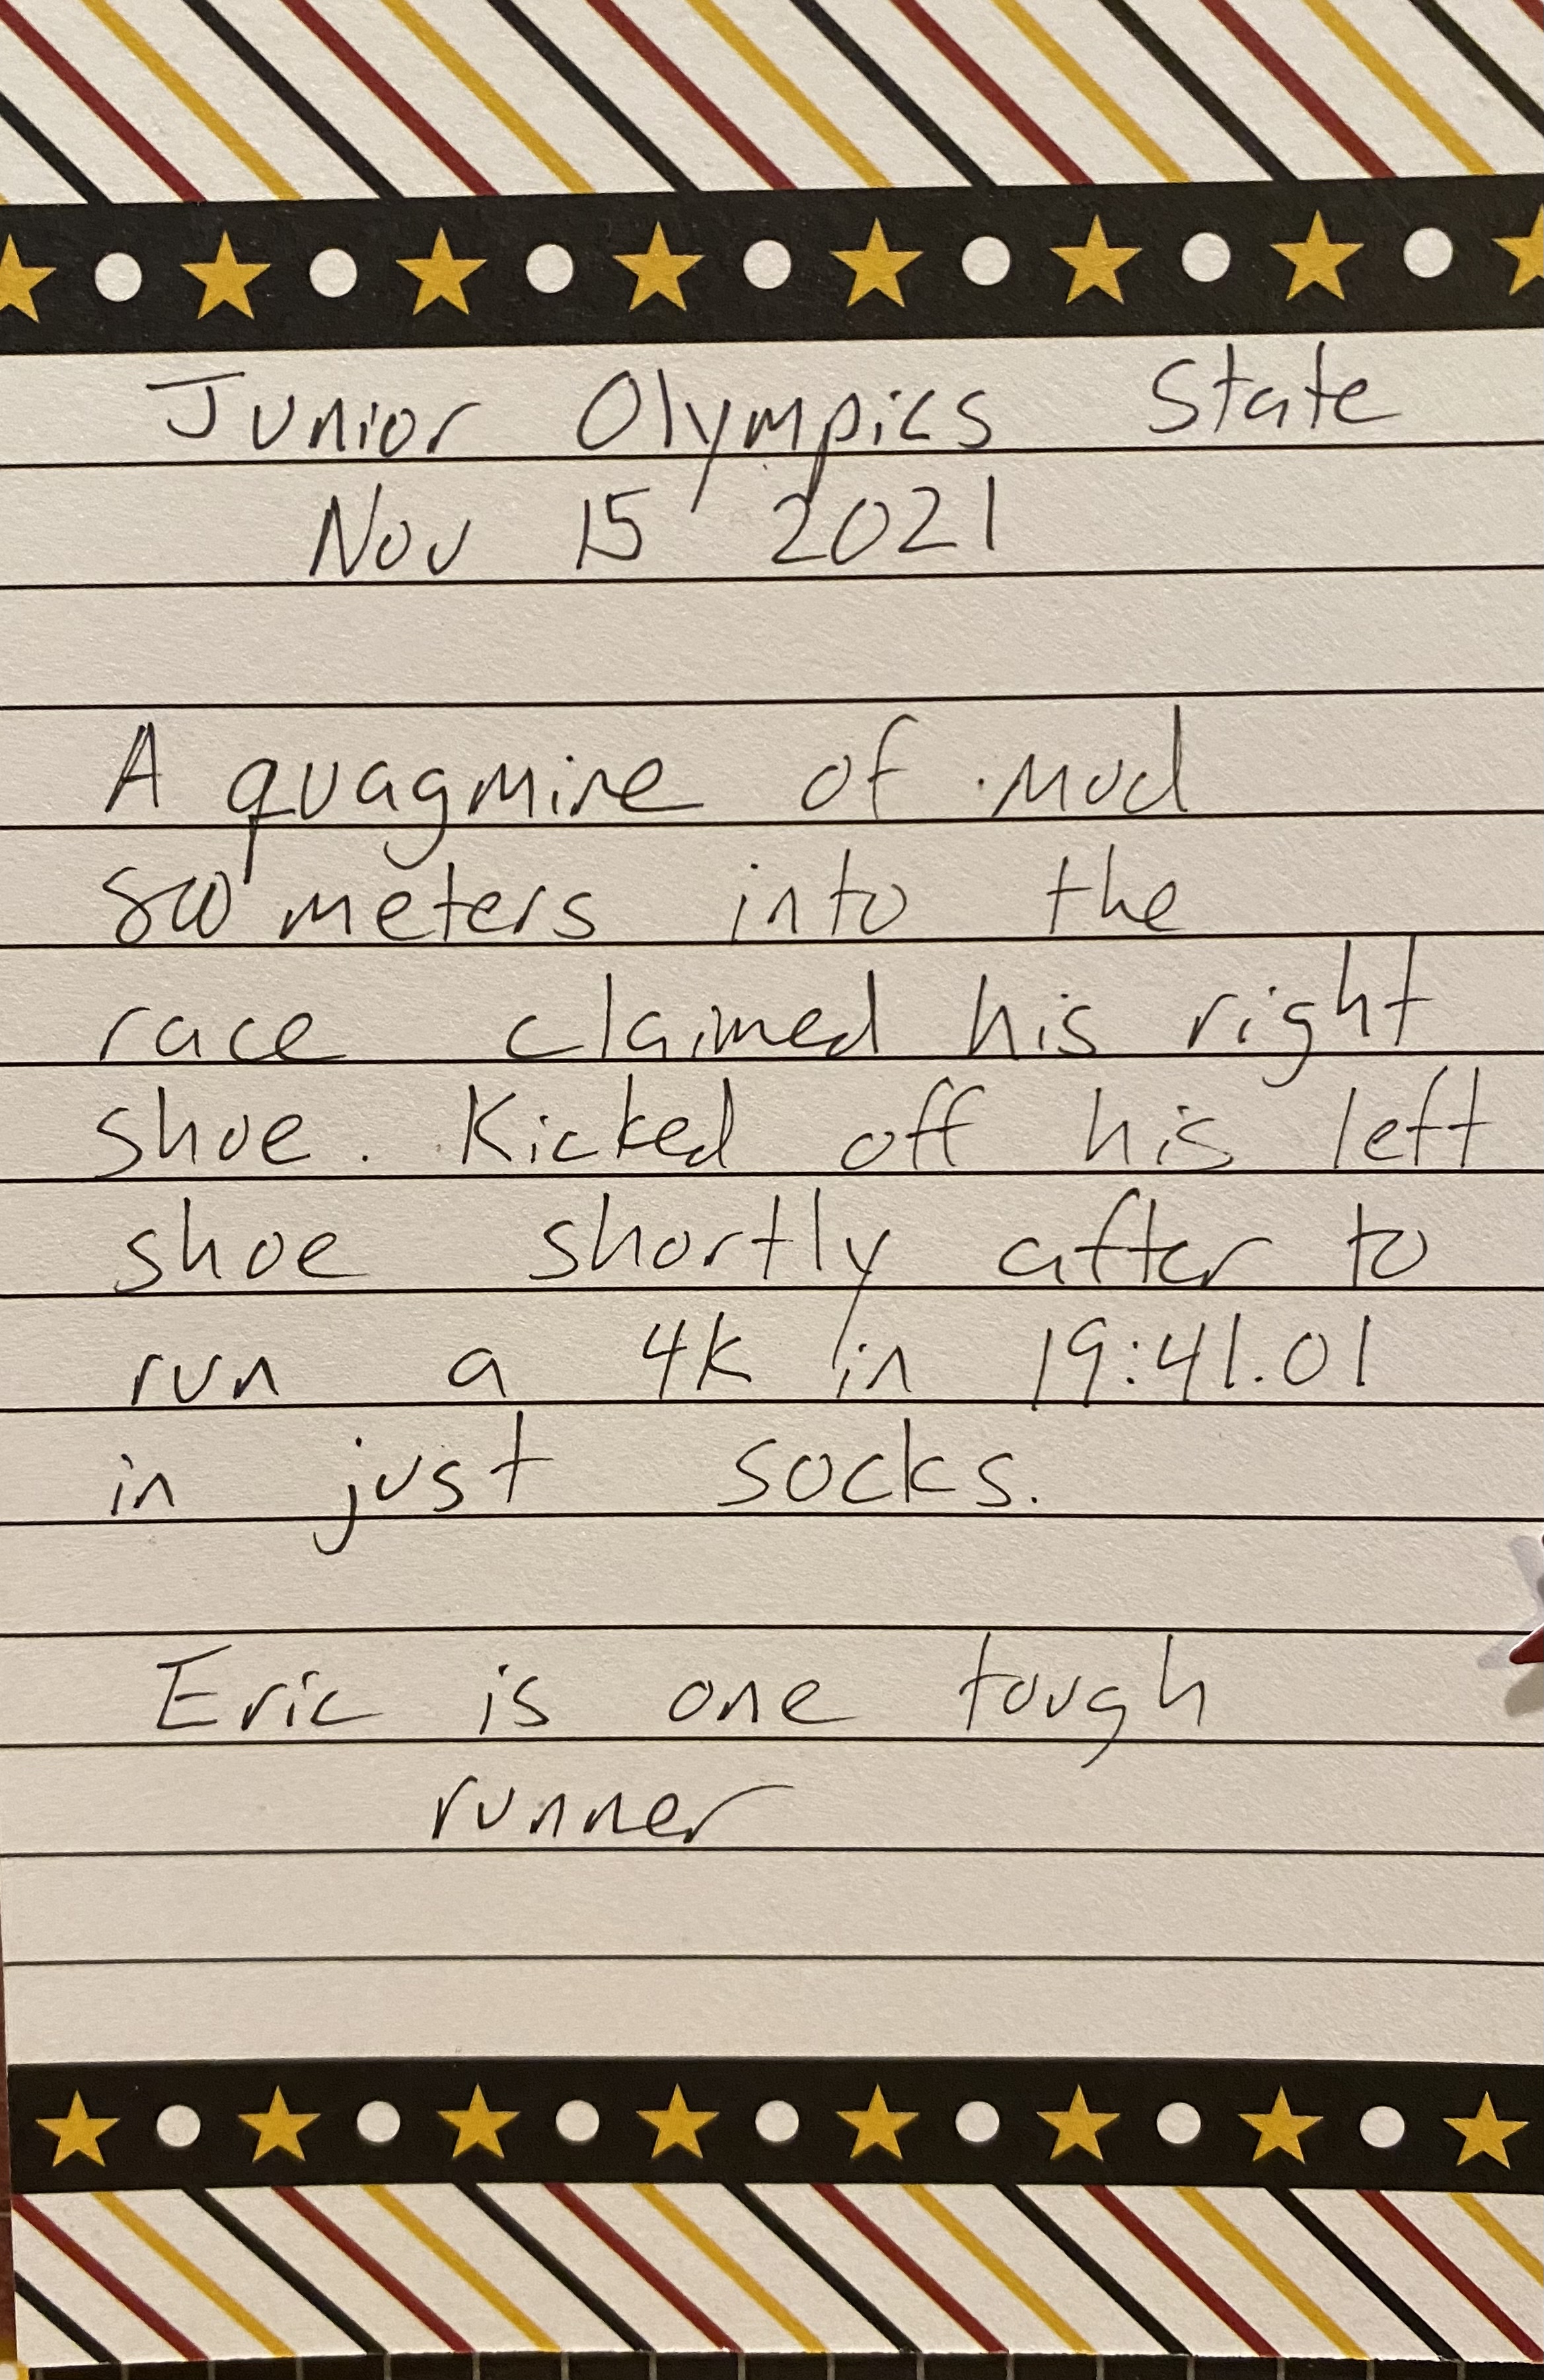 Junior Olympics State
Nov 15 2021
A quagmire of mud
800 meters into the
race claimed his right
shoe. Kicked off his left
shoe shortly after to
run a 4k in 19:41.01
in just socks.
Eric is one tough
runner